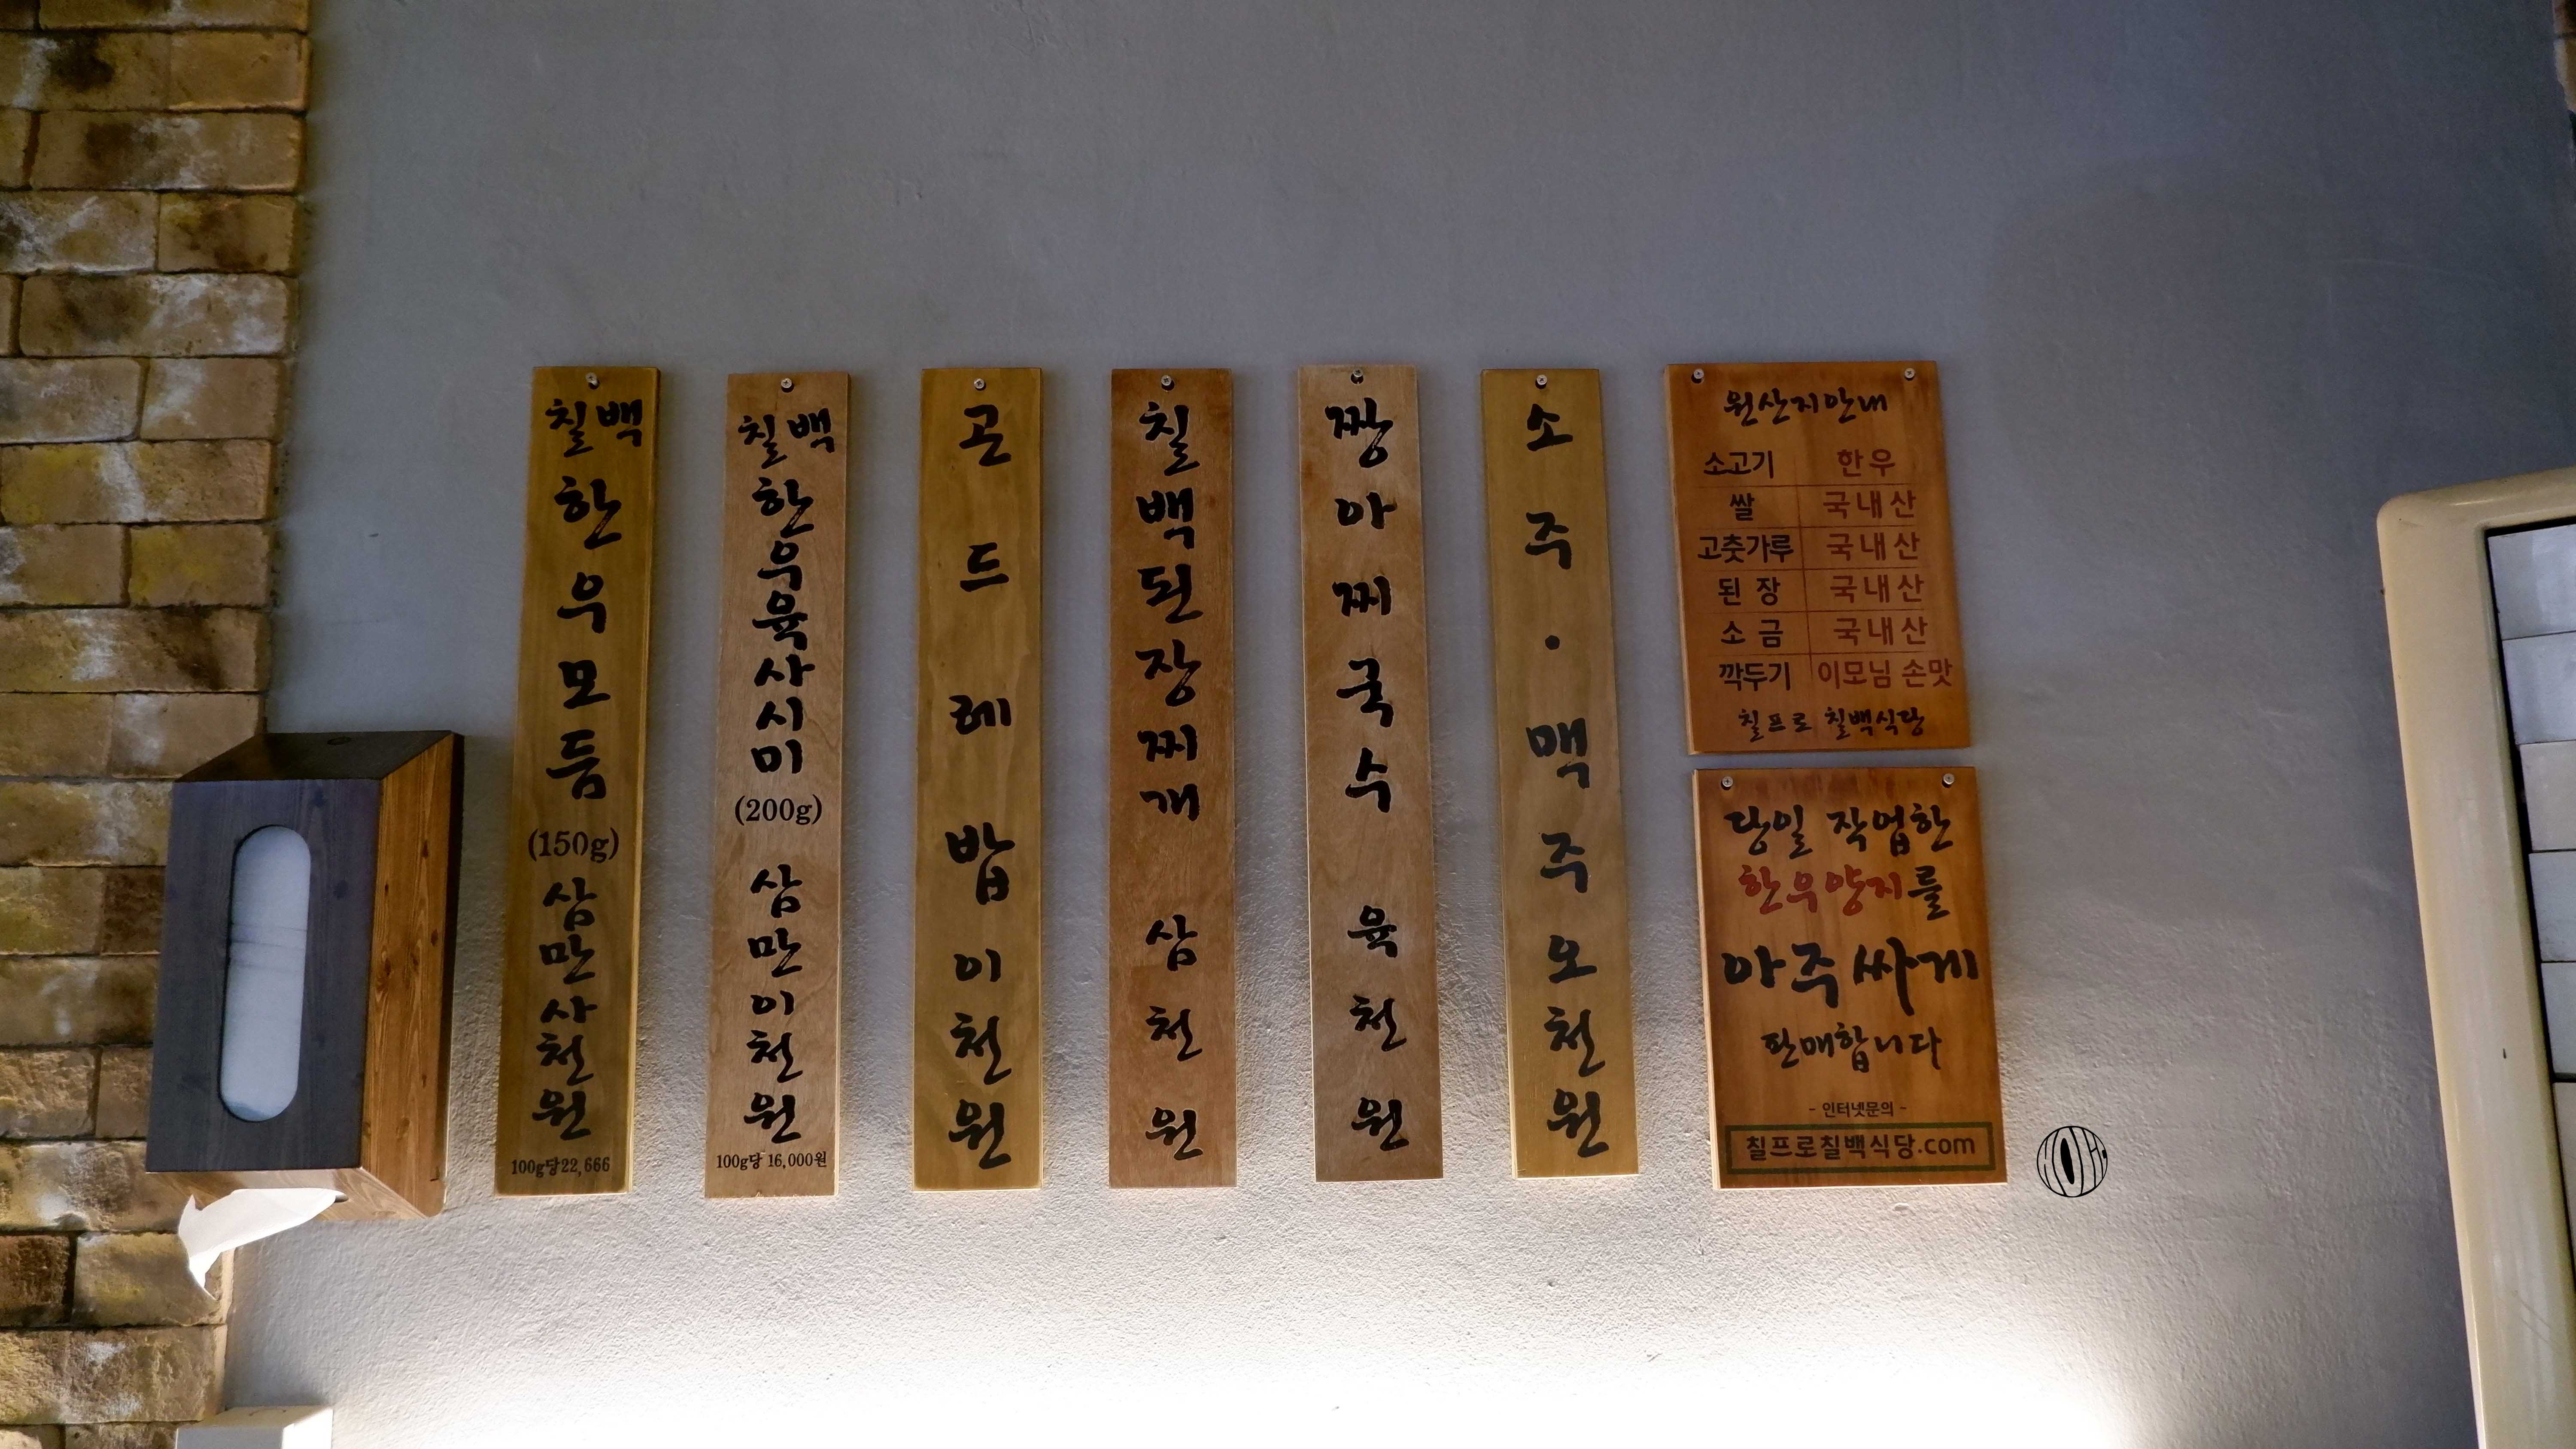 칠백
한우모둠
(150g)
삼만사천원
100g당22,666
칠백
한우육사시미
(200g)
삼만이천원
100g당 16,000원
곤드레밥 이천원
칠백된장찌개 삼천원
짱아찌국수 육천원
소주·맥주 오천원
원산지안내
소고기 한우
쌀 국내산
고춧가루 국내산
된장 국내산
소금 국내산
깍두기 이모님 손맛
칠프로 칠백식당
당일 작업한
한우양지를
아주 싸게
판매합니다
- 인터넷문의 -
칠프로칠백식당.com